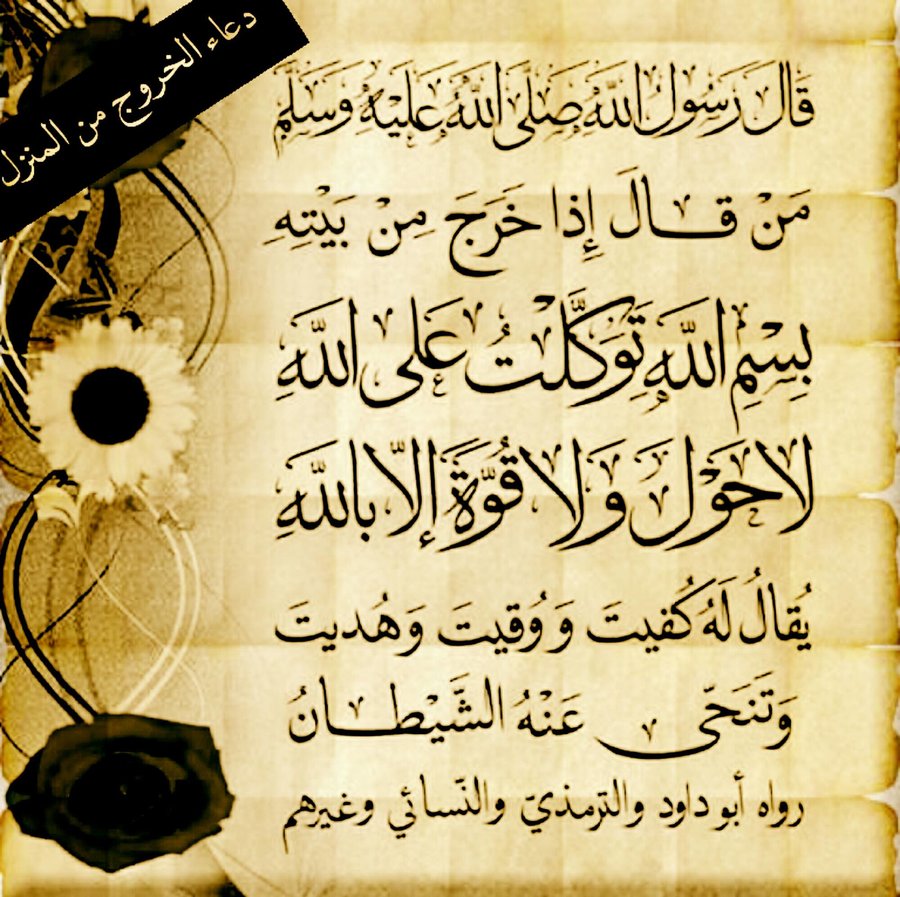 دعاء الخروج من المنزل
قَالَ رَسُولُ اللَّهِ صَلَّى اللَّهُ عَلَيْهِ وَسَلَّمَ
مَنْ قَالَ إِذا خَرَجَ مِنْ بَيْتِهِ
بِسْمِ اللَّهِ تَوَكَّلْتُ عَلى اللَّهِ
لا حَوْلَ وَلا قُوَّةَ إلاّ باللَّهِ
يُقالُ لَهُ كُفيتَ وَوُقيتَ وَهُديتَ
وَتَنَحّى عَنْهُ الشَّيْطانُ
رواه أبو داود والترمذيّ والنّسائي وغيرهم